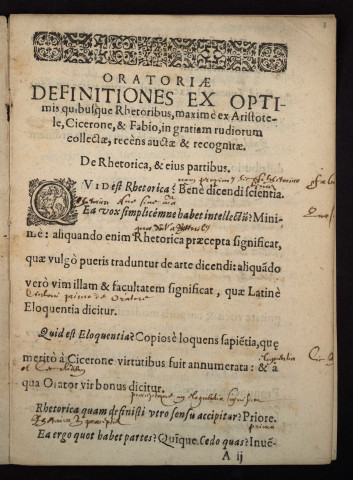 ORATORIÆ
DEFINITIONES EX OPTI-
mis quibusque Rhetoribus, maximè ex Aristote-
le, Cicerone, & Fabio, in gratiam rudiorum
collectæ, recèns auctæ & recognitæ.
De Rhetorica, & eius partibus.
QVID est Rhetorica? Benè dicendi scientia.
Ea vox simplicémne habet intellectū? Mini-
mè: aliquando enim Rhetorica præcepta significat,
quæ vulgò pueris traduntur de arte dicendi: aliquãdo
verò vim illam & facultatem significat, quæ Latinè
Eloquentia dicitur.
Quid est Eloquentia? Copiosè loquens sapiẽtia, quę
meritò à Cicerone virtutibus fuit annumerata: & à
qua Orator vir bonus dicitur.
Rhetorica quam definisti vtro sensu accipitur? Priore.
Ea ergo quot habet partes? Quīque. Cedo quas? Inuē-
A ij